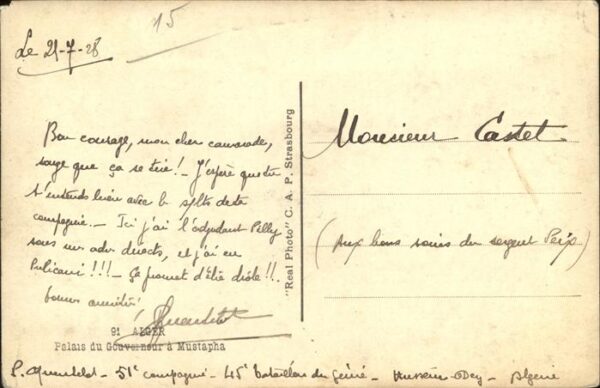 15
Le 21-7-28
Bon courage, mon cher camarade,
songe que ça se tire! - J'espère que tu
t'entends bien avec le de ta
compagnie. - Ici j'ai l'adjudant Pilly
sous ordres directs, et j'ai eu
!!! - Ça promet d'être drôle!!.
bonnes amitiés
91 ALGER
Palais du Gouverneur à Mustapha
"Real Photo" C. A. P. Strasbourg
Monsieur Castet
(aux bons soins du sergent Peix)
51e compagnie - 45e bataillon du génie - Hussein-Dey - Algérie